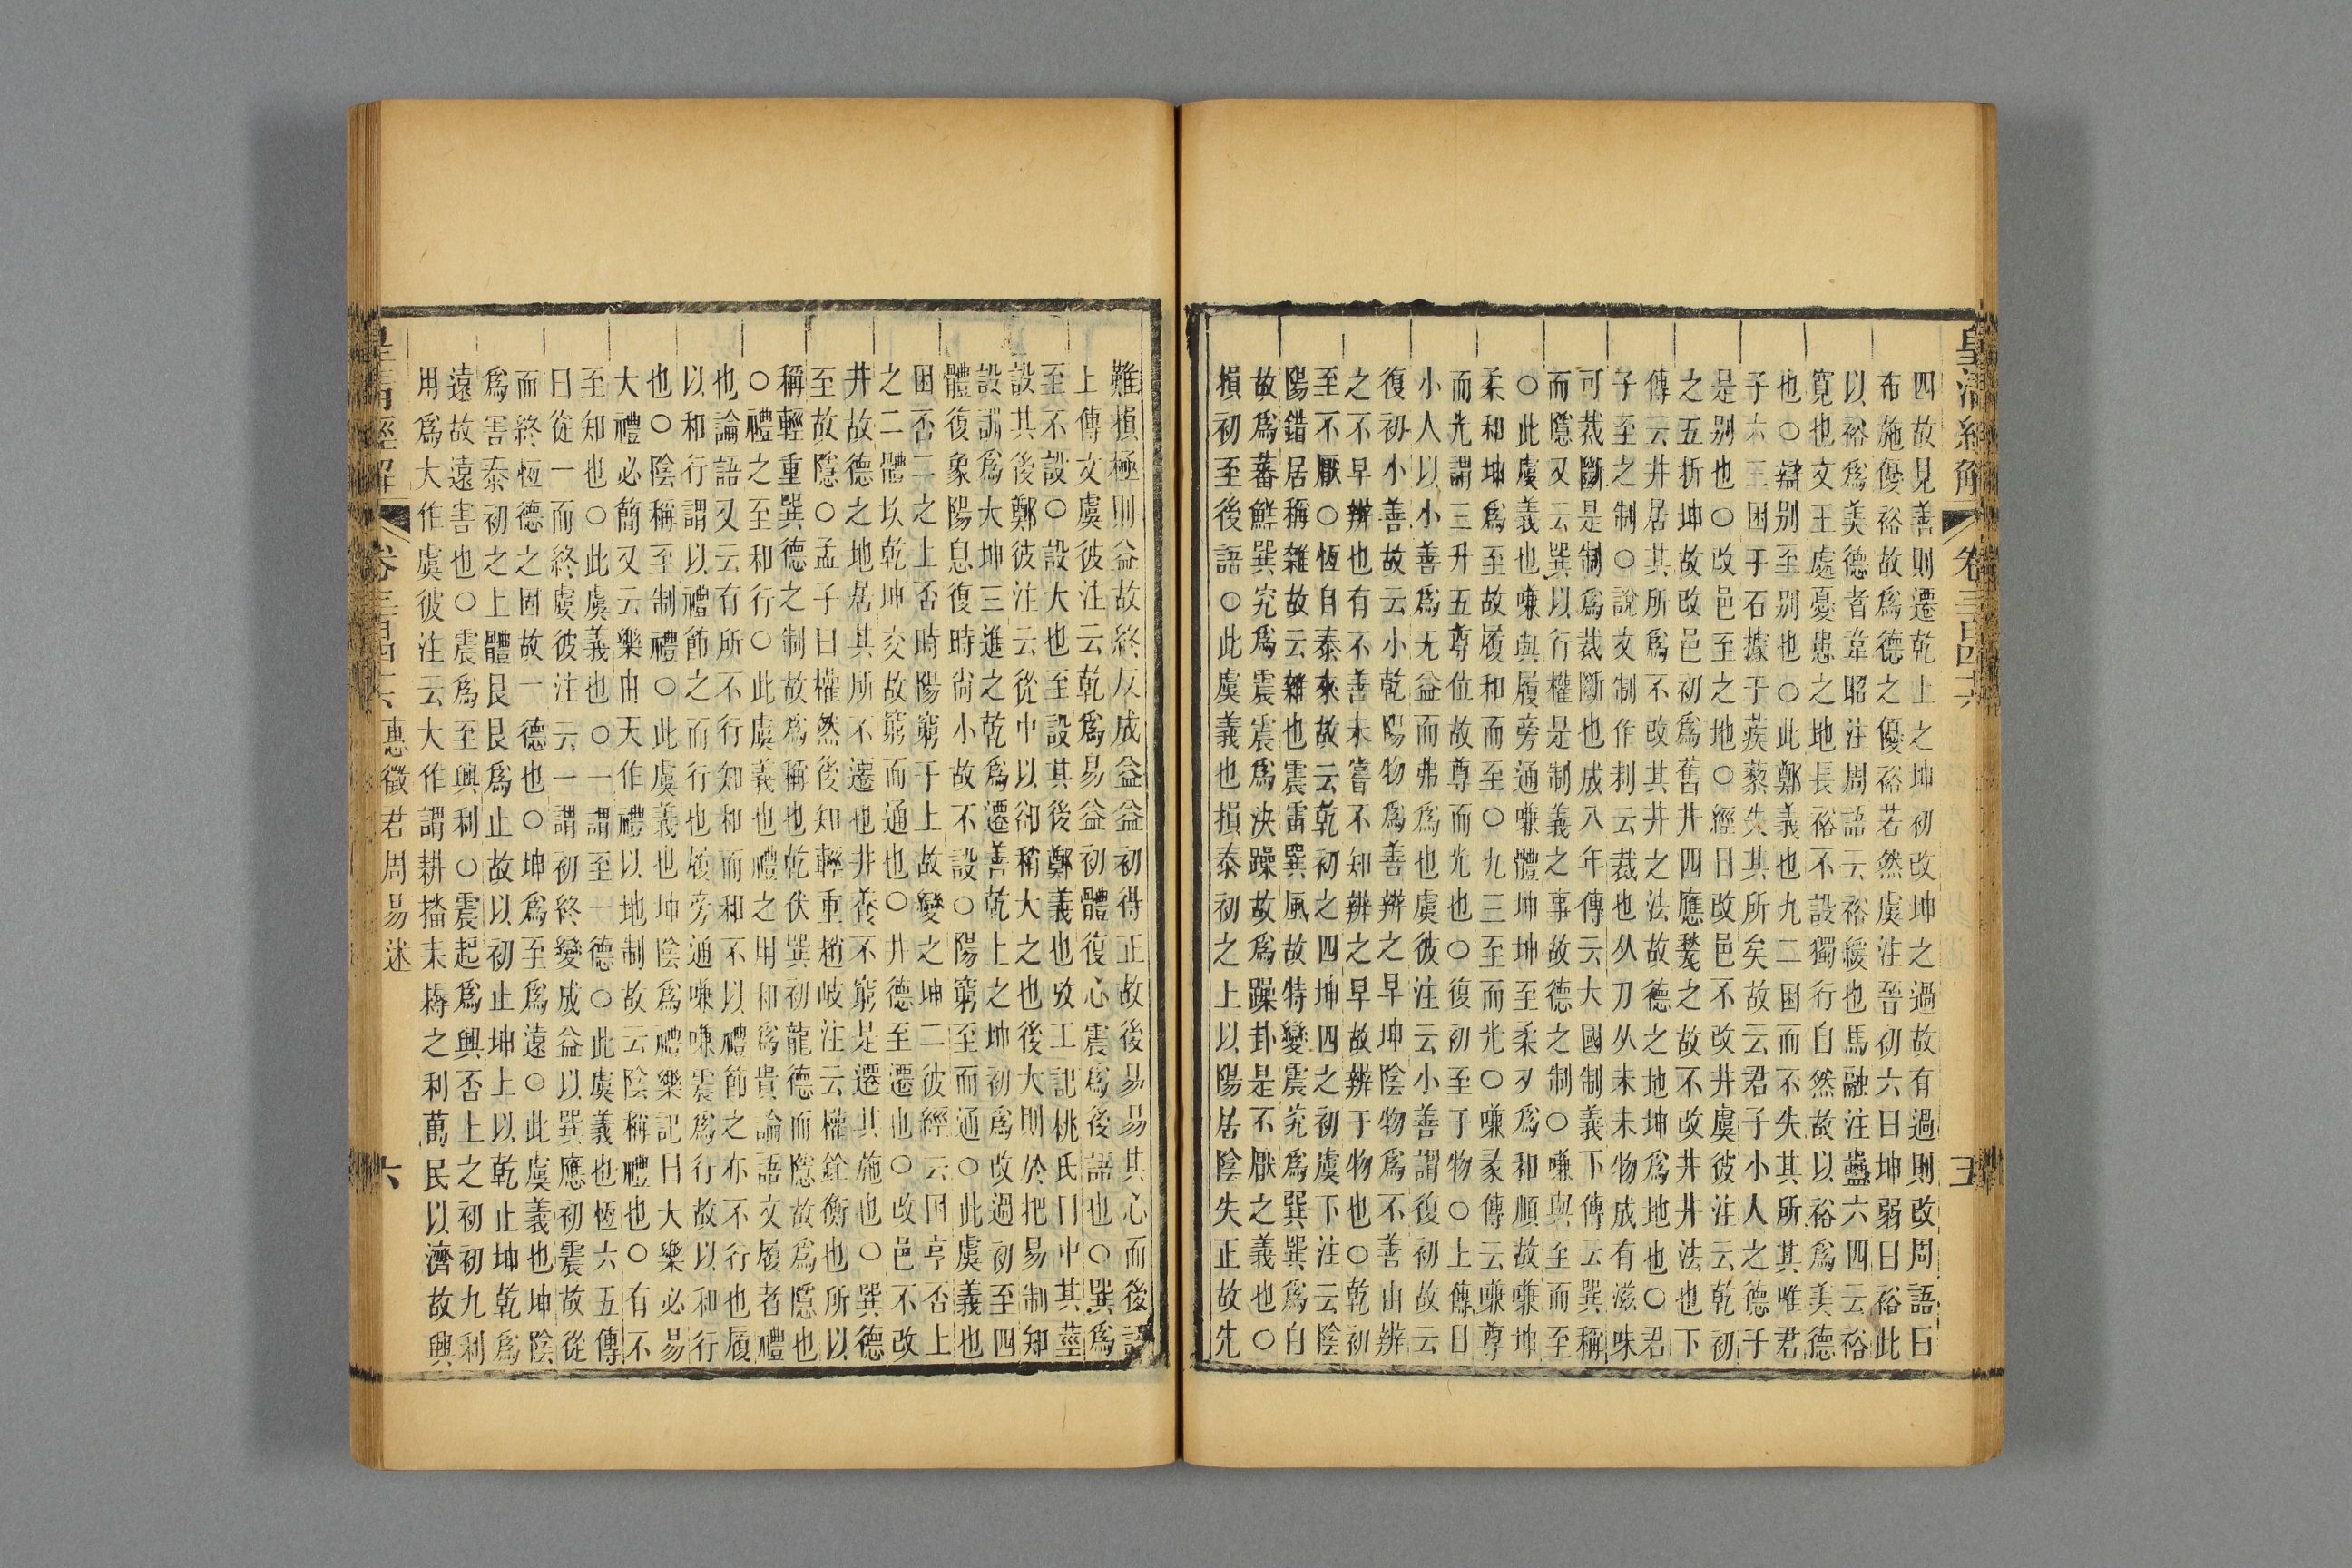 皇清經解 卷三百四十六 三
四故見善則遷乾上之坤初改坤之過故有過則改周語曰
布施優裕故爲德之優裕若然虞注晉初六曰坤弱曰裕此
以裕爲美德者韋昭注周語云裕緩也馬融注蠱六四云裕
寬也文王處憂患之地長裕不設獨行自然故以裕爲美德
也○辯别至别也○此鄭義也九二困而不失其所其唯君
子六三困于石據于蒺藜失其所矣故云君子小人之德子
是别也○改邑至之地○經曰改邑不改井虞彼注云乾初
之五折坤故改邑初爲舊井四應甃之故不改井井法也下
傳云井居其所爲不改其井之法故德之地坤爲地也○君
子至之制○說文制作利云裁也从刀从未未物成有滋味
可裁斷是制爲裁斷也成八年傳云大國制義下傳云巽稱
而隱又云巽以行權是制義之事故德之制○嗛與至而至
○此虞義也嗛與履旁通嗛體坤坤至柔又爲和順故嗛坤
柔和坤爲至故履和而至○九三至而光○嗛彖傳云嗛尊
而光謂三升五尊位故尊而光也○復初至于物○上傳曰
小人以小善爲无益而弗爲也虞彼注云小善謂復初故云
復初小善故云小乾陽物爲善辨之早坤陰物爲不善由辨
之不早辨也有不善未嘗不知辨之早故辨于物也○乾初
至不厭○恆自泰來故云乾初之四坤四之初虞下注云陰
陽錯居稱雜故云雜也震雷巽風故特變震究爲巽巽爲白
故爲蕃鮮巽究爲震震爲決躁故爲躁卦是不厭之義也○
損初至後語○此虞義也損泰初之上以陽居陰失正故先
難損極則益故終反成益益初得正故後易易其心而後語
上傳文虞彼注云乾爲易益初體復心震爲後語也○巽爲
至不設○設大也至設其後鄭義也攷工記桃氏曰中其莖
設其後鄭彼注云從中以卻稍大之也後大則於把易制知
設訓爲大坤三進之乾爲遷善乾上之坤初爲改過初至四
體復象陽息復時尙小故不設○陽窮至而通○此虞義也
困否二之上否時陽窮于上故變之坤二彼經云困亨否上
之二體坎乾坤交故窮而通也○井德至遷也○改邑不改
井故德之地居其所不遷也井養不窮是遷其施也○巽德
至故隱○孟子曰權然後知輕重趙岐注云權銓衡也所以
稱輕重巽德之制故爲稱也乾伏巽初龍德而隱故爲隱也
○禮之至和行○此虞義也禮之用和爲貴論語文履者禮
也論語又云有所不行知和而和不以禮節之亦不行也履
以和行謂以禮節之而行也履旁通嗛嗛震爲行故以和行
也○陰稱至制禮○此虞義也坤陰爲禮樂記曰大樂必易
大禮必簡又云樂由天作禮以地制故云陰稱禮也○有不
至知也○此虞義也○一謂至一德○此虞義也恆六五傳
曰從一而終虞彼注云一謂初終變成益以巽應初震故從
而終恆德之固故一德也○坤爲至爲遠○此虞義也坤陰
爲害泰初之上體艮艮爲止故以初止坤上以乾止坤乾爲
遠故遠害也○震爲至興利○震起爲興否上之初初九利
用爲大作虞彼注云大作謂耕播耒耨之利萬民以濟故興
皇清經解 卷三百四十六 惠徵君周易述 六